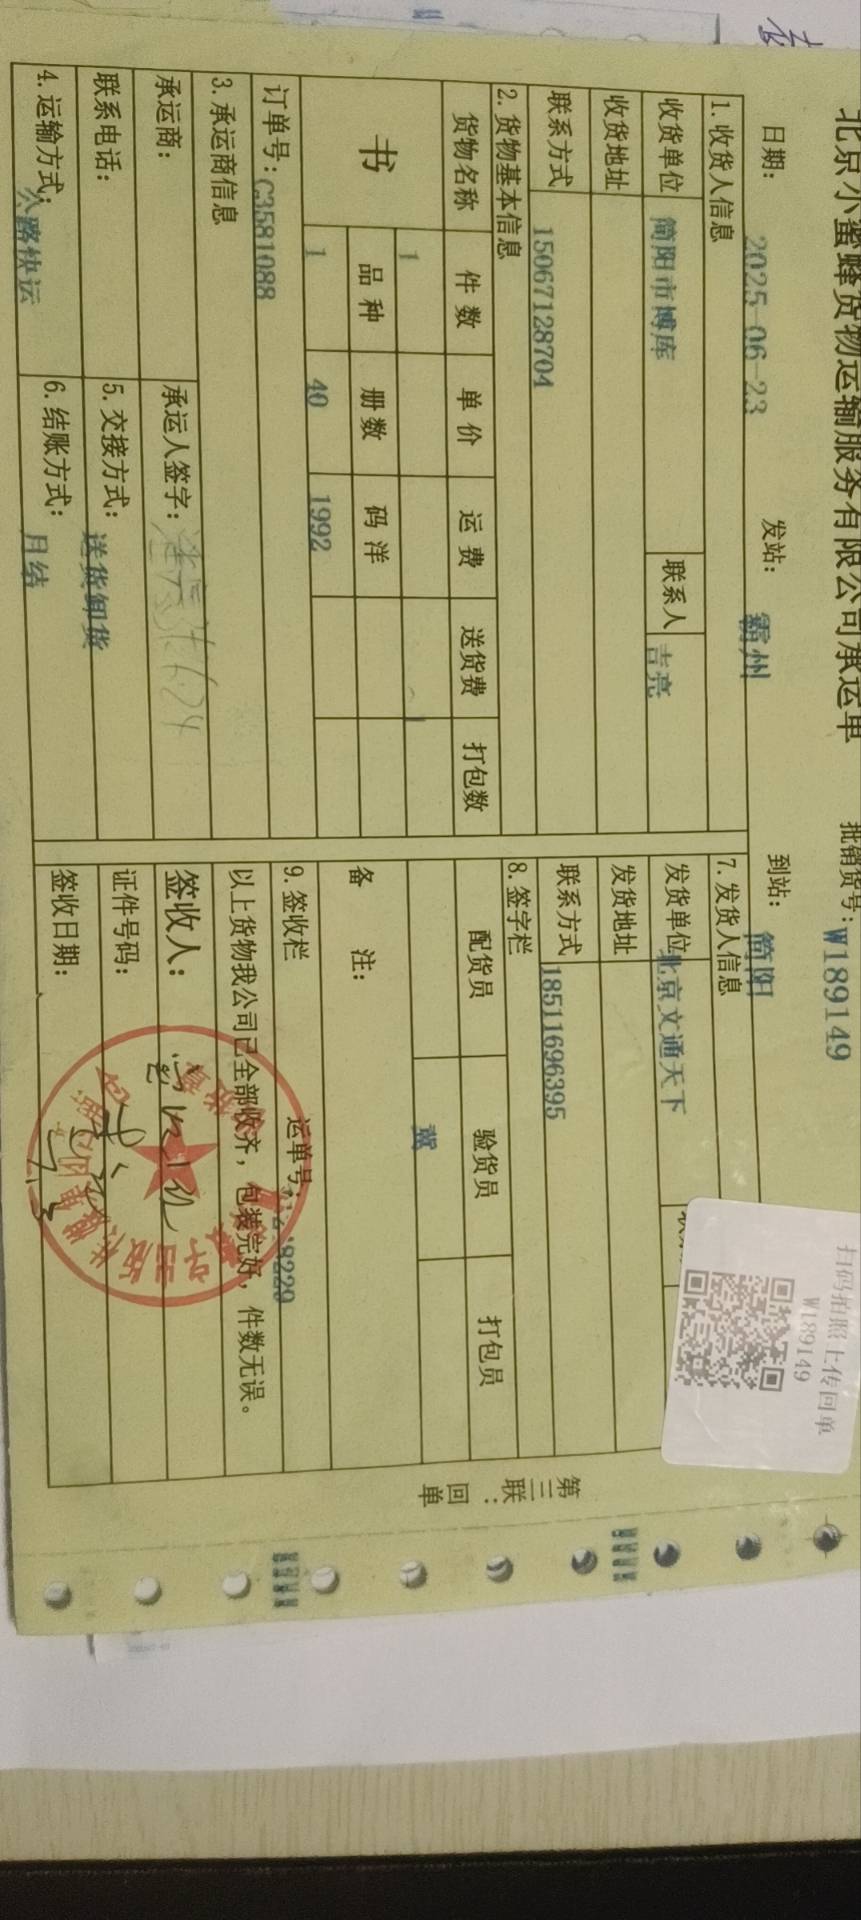 北京小蜜蜂货物运输服务有限公司承运单
批销货号：W189149
日期： 2025-06-23 发站： 霸州 到站： 简阳
1. 收货人信息
收货单位 简阳市博库 联系人 吉亮
收货地址
联系方式 15067128704
2. 货物基本信息
货物名称 件数 单价 运费 送货费 打包数
书 1
品种 册数 码洋
1 40 1992
订单号：C3581088
3. 承运商信息
承运商： 承运人签字：
联系电话： 5. 交接方式： 送货卸货
4. 运输方式： 公路快运 6. 结账方式： 月结
7. 发货人信息
发货单位 北京文通天下
发货地址
联系方式 18511696395
8. 签字栏
配货员 验货员 打包员
冀
备 注：
9. 签收栏 运单号：
以上货物我公司已全部收齐，包装完好，件数无误。
签收人：
证件号码：
签收日期：
第三联：回单
扫码拍照上传回单
W189149